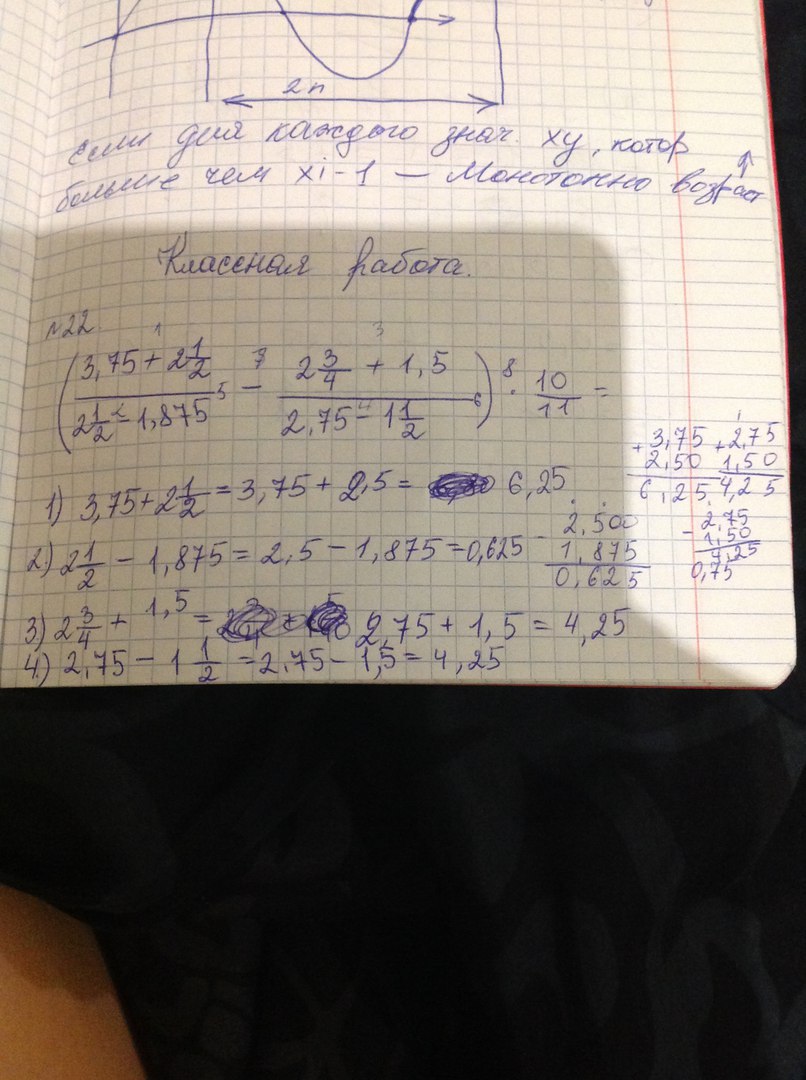 2π
Если для каждого знач. xy, котор
больше чем xi-1 — Монотонно возраст ↑
Классная работа.
№22
1 3
(3,75 + 2 1/2 / 2 1/2 - 1,875 - 2 3/4 + 1,5 / 2,75 - 1 1/2) · 10/11 =
2 5 7 4 6 8
1) 3,75 + 2 1/2 = 3,75 + 2,5 = 6,25
+ 3,75
2,50
6,25
+ 2,75
1,50
4,25
2) 2 1/2 - 1,875 = 2,5 - 1,875 = 0,625
- 2,500
1,875
0,625
- 2,75
1,50
4,25
0,75
3) 2 3/4 + 1,5 = 2,75 + 1,5 = 4,25
4) 2,75 - 1 1/2 = 2,75 - 1,5 = 4,25